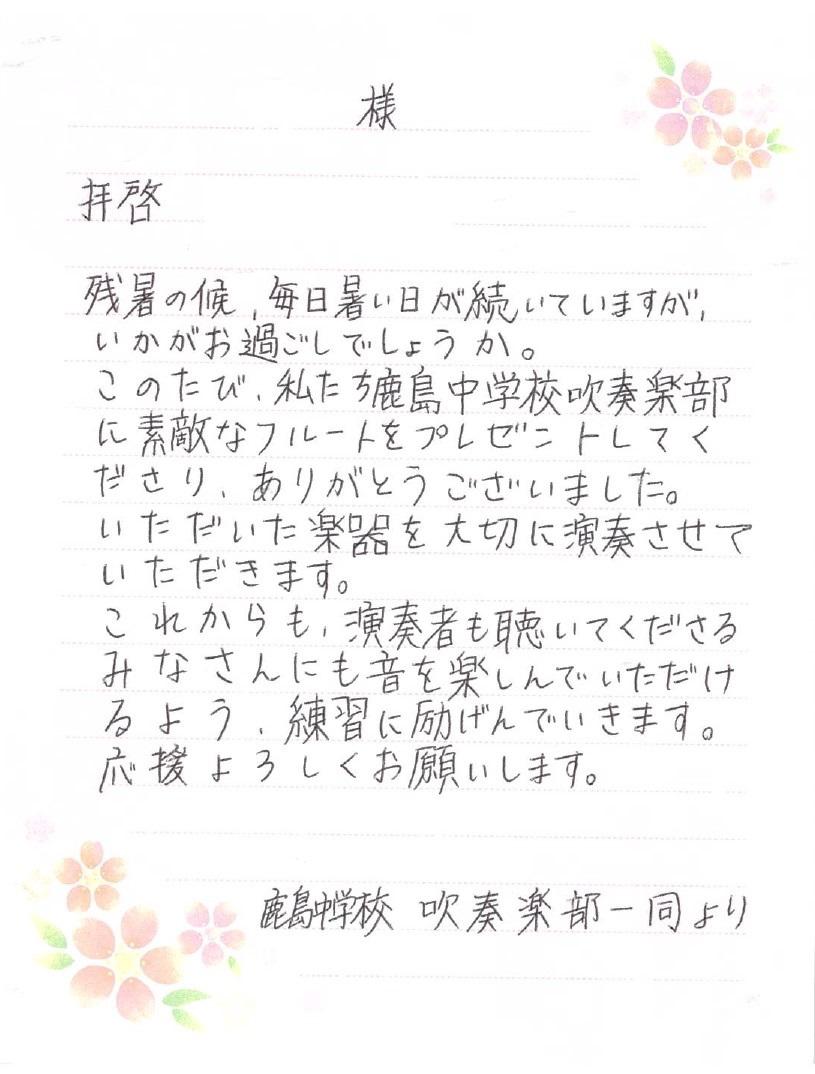 様
拝啓
残暑の候、毎日暑い日が続いていますが、
いかがお過ごしでしょうか。
このたび、私たち鹿島中学校吹奏楽部
に素敵なフルートをプレゼントしてく
ださり、ありがとうございました。
いただいた楽器を大切に演奏させて
いただきます。
これからも、演奏者も聴いてくださる
みなさんにも音を楽しんでいただけ
るよう、練習に励げんでいきます。
応援よろしくお願いします。
鹿島中学校 吹奏楽部一同より